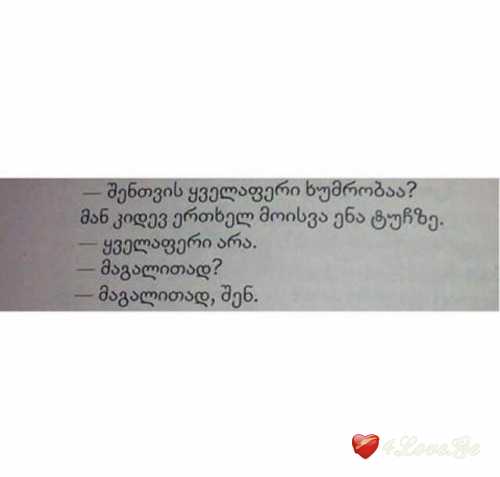 — შენთვის ყველაფერი ხუმრობაა?
მან კიდევ ერთხელ მოისვა ენა ტუჩზე.
— ყველაფერი არა.
— მაგალითად?
— მაგალითად, შენ.
4Love.Ge